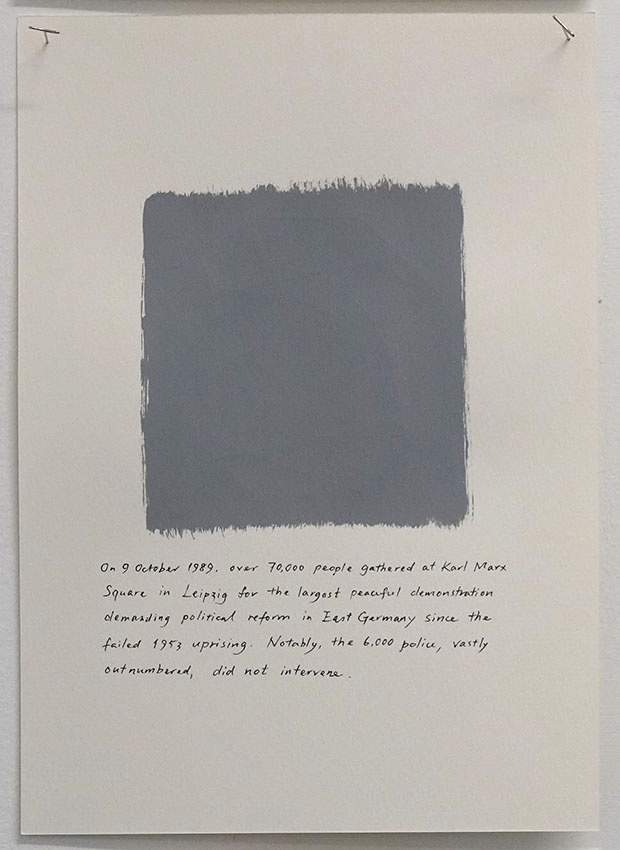 On 9 October 1989, over 70,000 people gathered at Karl Marx
Square in Leipzig for the largest peaceful demonstration
demanding political reform in East Germany since the
failed 1953 uprising. Notably, the 6,000 police, vastly
outnumbered, did not intervene.